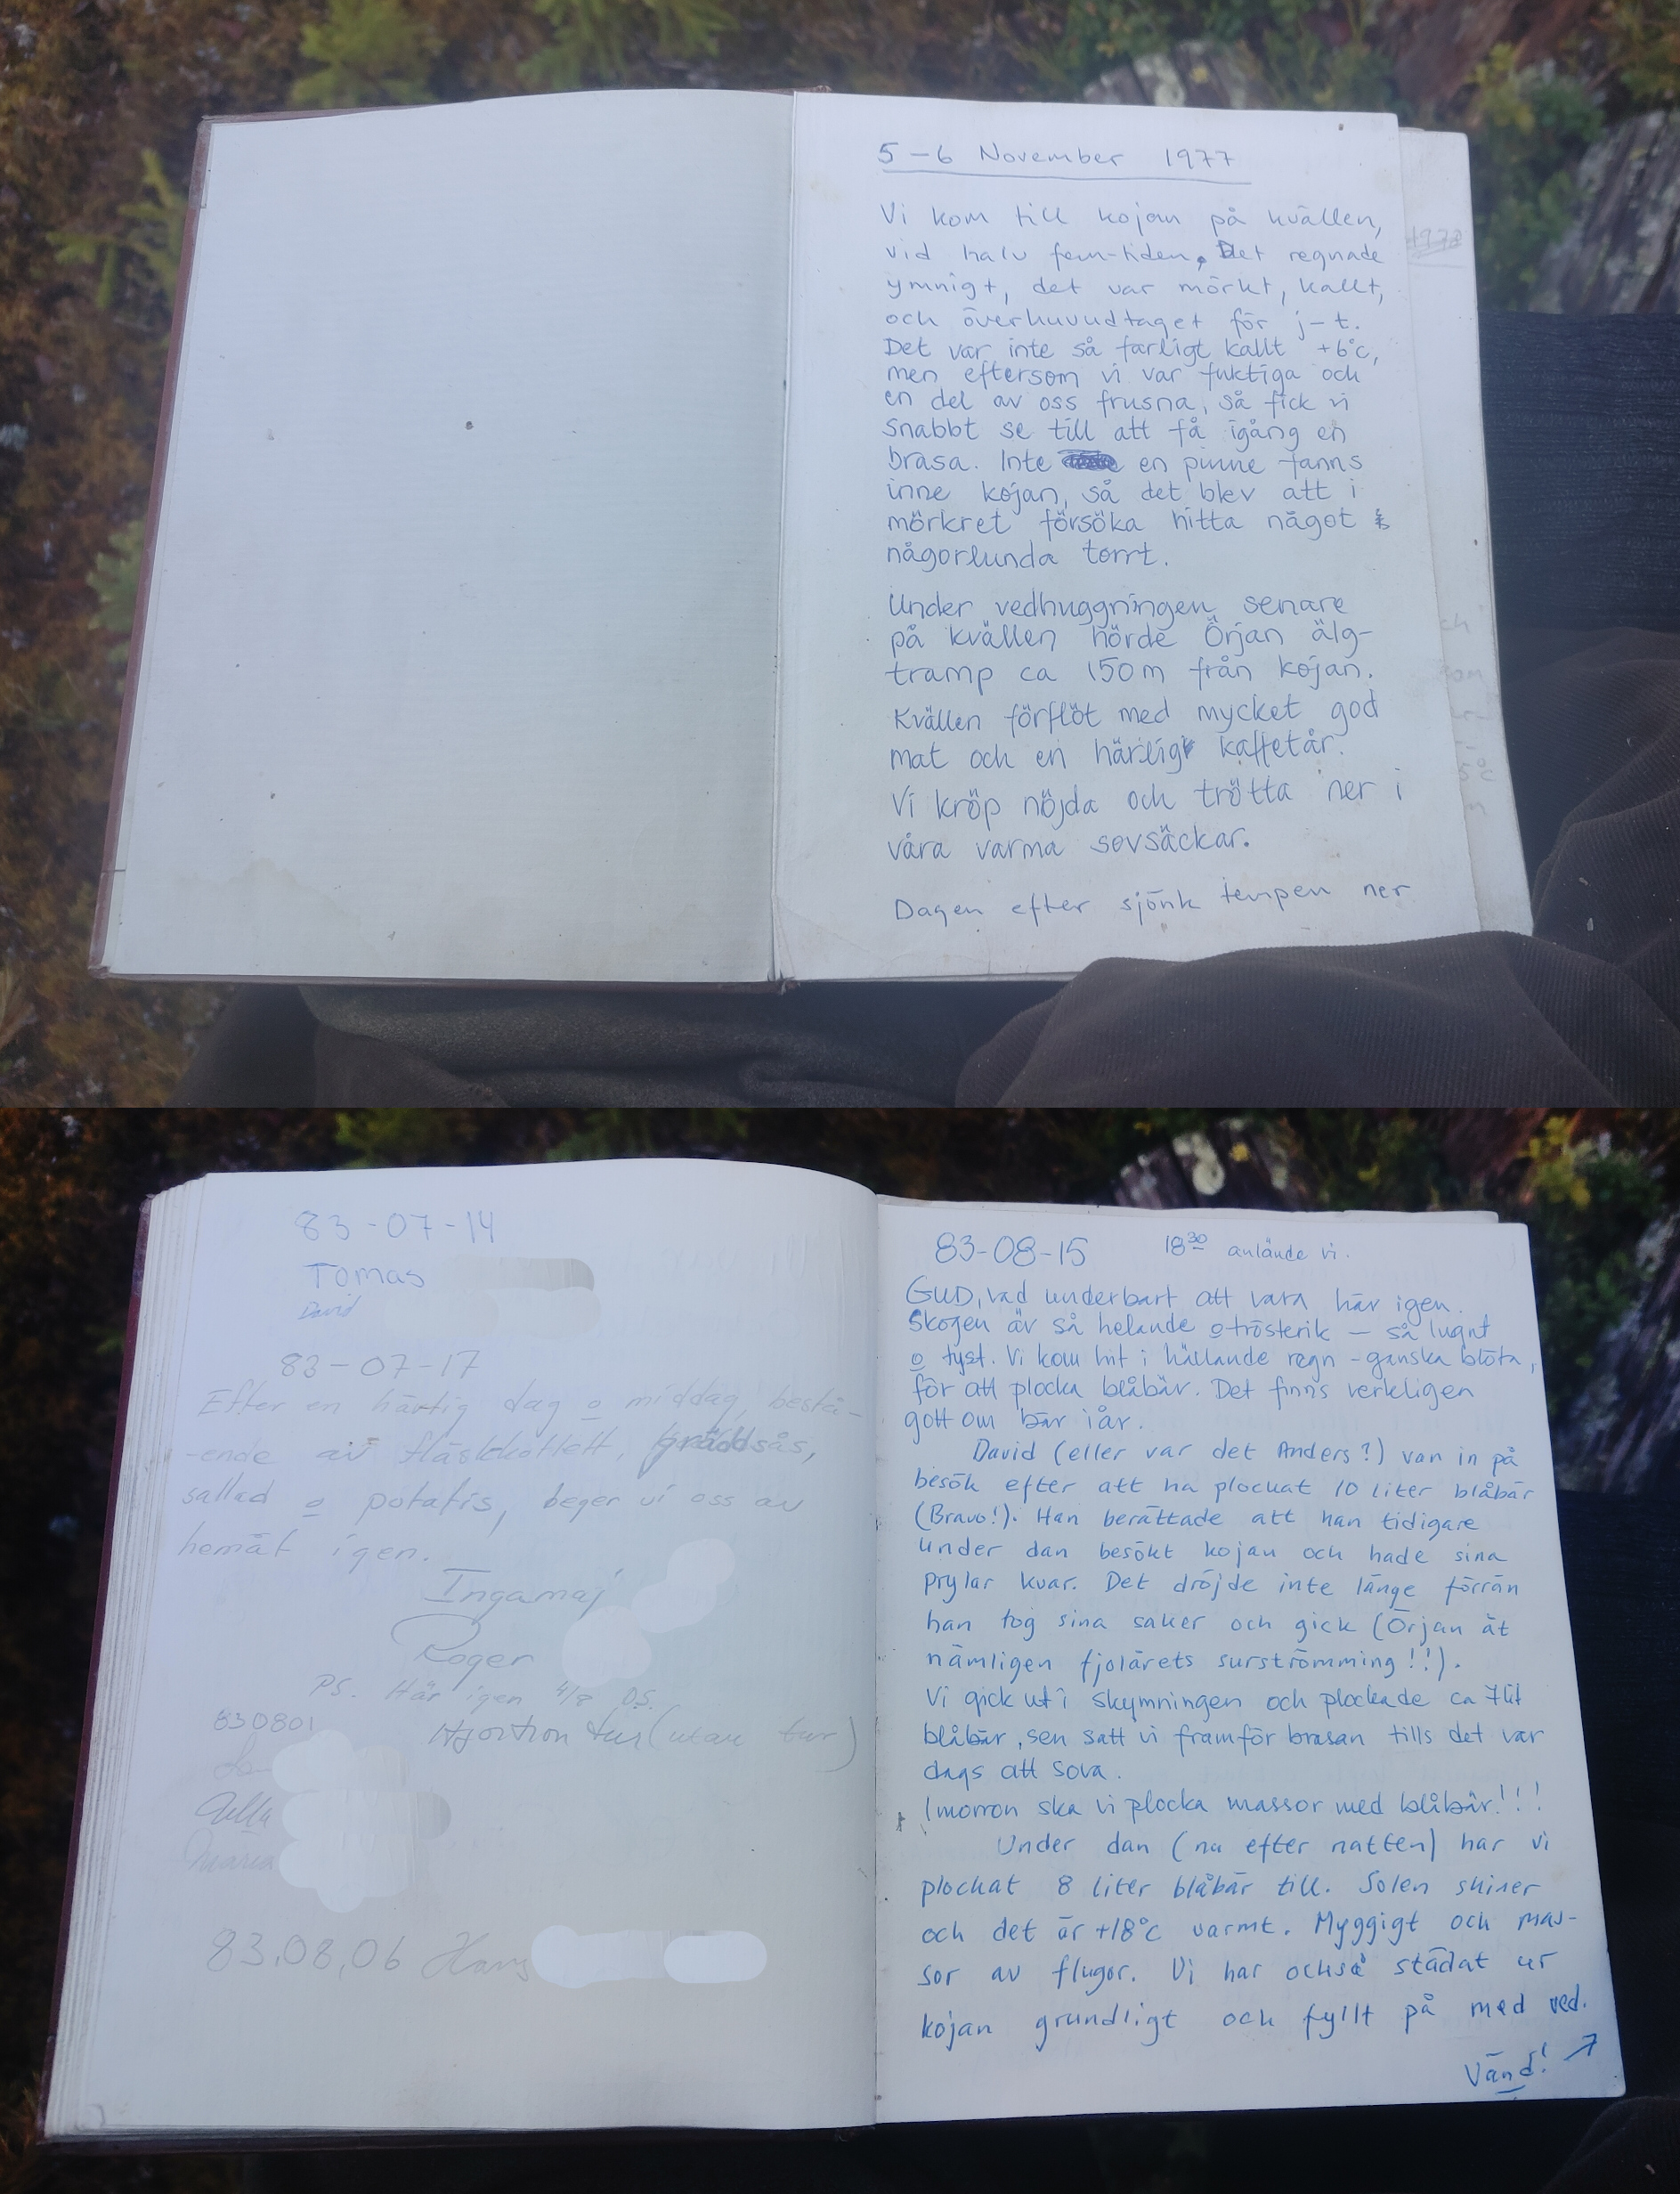 5-6 November 1977
Vi kom till kojan på kvällen,
vid halv fem-tiden. Det regnade
ymnigt, det var mörkt, kallt,
och överhuvudtaget för j-t.
Det var inte så farligt kallt +6°c,
men eftersom vi var fuktiga och
en del av oss frusna, så fick vi
snabbt se till att få igång en
brasa. Inte en pinne fanns
inne kojan, så det blev att i
mörkret försöka hitta något
någorlunda torrt.
Under vedhuggningen senare
på kvällen hörde Örjan älg-
tramp ca 150 m från kojan.
Kvällen förflöt med mycket god
mat och en härlig kaffetår.
Vi kröp nöjda och trötta ner i
våra varma sovsäckar.
Dagen efter sjönk tempen ner
83-07-14
Tomas
David
83-07-17
Efter en härlig dag o middag, bestå-
-ende av fläskkotlett, gräddsås,
sallad o potatis, beger vi oss av
hemåt igen.
Ingamaj
Roger
PS. Här igen 4/8 DS.
830801
Hjortron tur (utan tur)
Maria
83.08.06 Hans
83-08-15 18³⁰ anlände vi.
GUD, vad underbart att vara här igen.
Skogen är så helande o trösterik — så lugnt
o tyst. Vi kom hit i hällande regn - ganska blöta,
för att plocka blåbär. Det finns verkligen
gott om bär i år.
David (eller var det Anders?) van in på
besök efter att ha plockat 10 liter blåbär
(Bravo!). Han berättade att han tidigare
under dan besökt kojan och hade sina
prylar kvar. Det dröjde inte länge förrän
han tog sina saker och gick (Örjan åt
nämligen fjolårets surströmming!!).
Vi gick ut i skymningen och plockade ca 7 lit
blåbär, sen satt vi framför brasan tills det var
dags att sova.
Imorron ska vi plocka massor med blåbär!!!
Under dan (nu efter natten) har vi
plockat 8 liter blåbär till. Solen skiner
och det är +18°c varmt. Myggigt och mas-
sor av flugor. Vi har också städat ur
kojan grundligt och fyllt på med ved.
Vänd! ↗